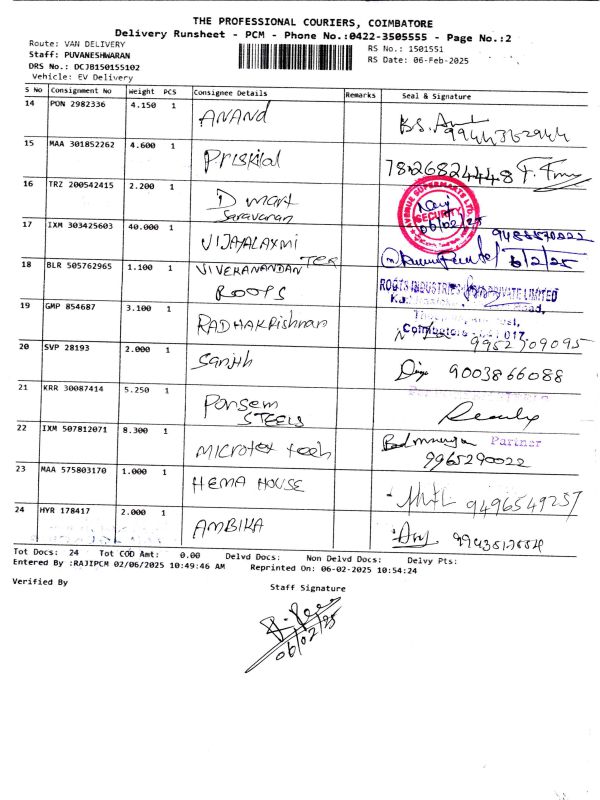 THE PROFESSIONAL COURIERS, COIMBATORE
Delivery Runsheet - PCM - Phone No.:0422-3505555 - Page No.:2
Route: VAN DELIVERY
RS No.: 1501551
Staff: PUVANESHWARAN
RS Date: 06-Feb-2025
DRS No.: DCJB150155102
Vehicle: EV Delivery
S No Consignment No Weight PCS Consignee Details Remarks Seal & Signature
14 PON 2982336 4.150 1 ANAND 9944362944
15 MAA 301852262 4.600 1 Priskilal 7826824448
16 TRZ 200542415 2.200 1 D mart
Saravanan
AVENUE SUPERMARTS LTD.
SECURITY
06/02/25
17 IXM 303425603 40.000 1 VIJAYALAXMI TEX
6/2/25
18 BLR 505762965 1.100 1 VIVEKANANDAN
ROOPS
ROOTS INDUSTRIES PRIVATE LIMITED
Road,
Coimbatore
19 GMP 854687 3.100 1 RADHAKRishnan
9952509095
20 SVP 28193 2.000 1 Sanjth 9003866088
21 KRR 30087414 5.250 1 Ponsem
STEELS
22 IXM 507812071 8.300 1 MICROTEX tech Partner
9965290022
23 MAA 575803170 1.000 1 HEMA HOUSE 9496549257
24 HYR 178417 2.000 1 AMBIKA
Tot Docs: 24 Tot COD Amt: 0.00 Delvd Docs: Non Delvd Docs: Delvy Pts:
Entered By :RAJIPCM 02/06/2025 10:49:46 AM Reprinted On: 06-02-2025 10:54:24
Verified By
Staff Signature
06/02/25